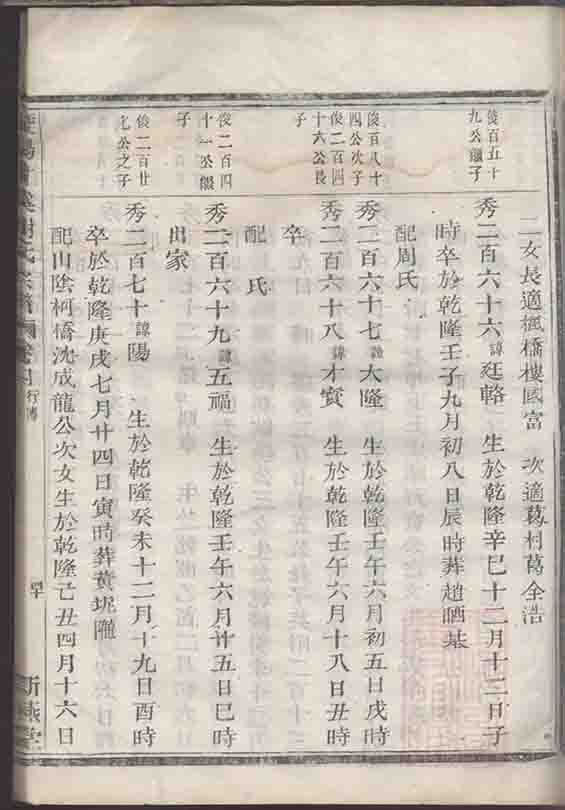 二女長適楓橋樓國富 次適葛村葛全浩
俊百五十
九公繼子
秀二百六十六諱廷輅 生於乾隆辛巳十二月十二日子
時卒於乾隆壬子九月初八日辰時葬趙陌基
配周氏
俊百八十
四公次子
秀二百六十七諱大隆 生於乾隆壬午六月初五日戌時
俊二百四
十六公長
子
秀二百六十八諱才寳 生於乾隆壬午六月十八日丑時
卒
配 氏
俊二百四
十一公繼
子
秀二百六十九諱五福 生於乾隆壬午六月廿五日巳時
出家
俊二百廿
九公之子
秀二百七十諱陽 生於乾隆癸未十二月十九日酉時
卒於乾隆庚戌七月廿四日寅時葬黃坭隴
配山陰柯橋沈成龍公次女生於乾隆丁丑四月十六日
氏宗譜 行傳